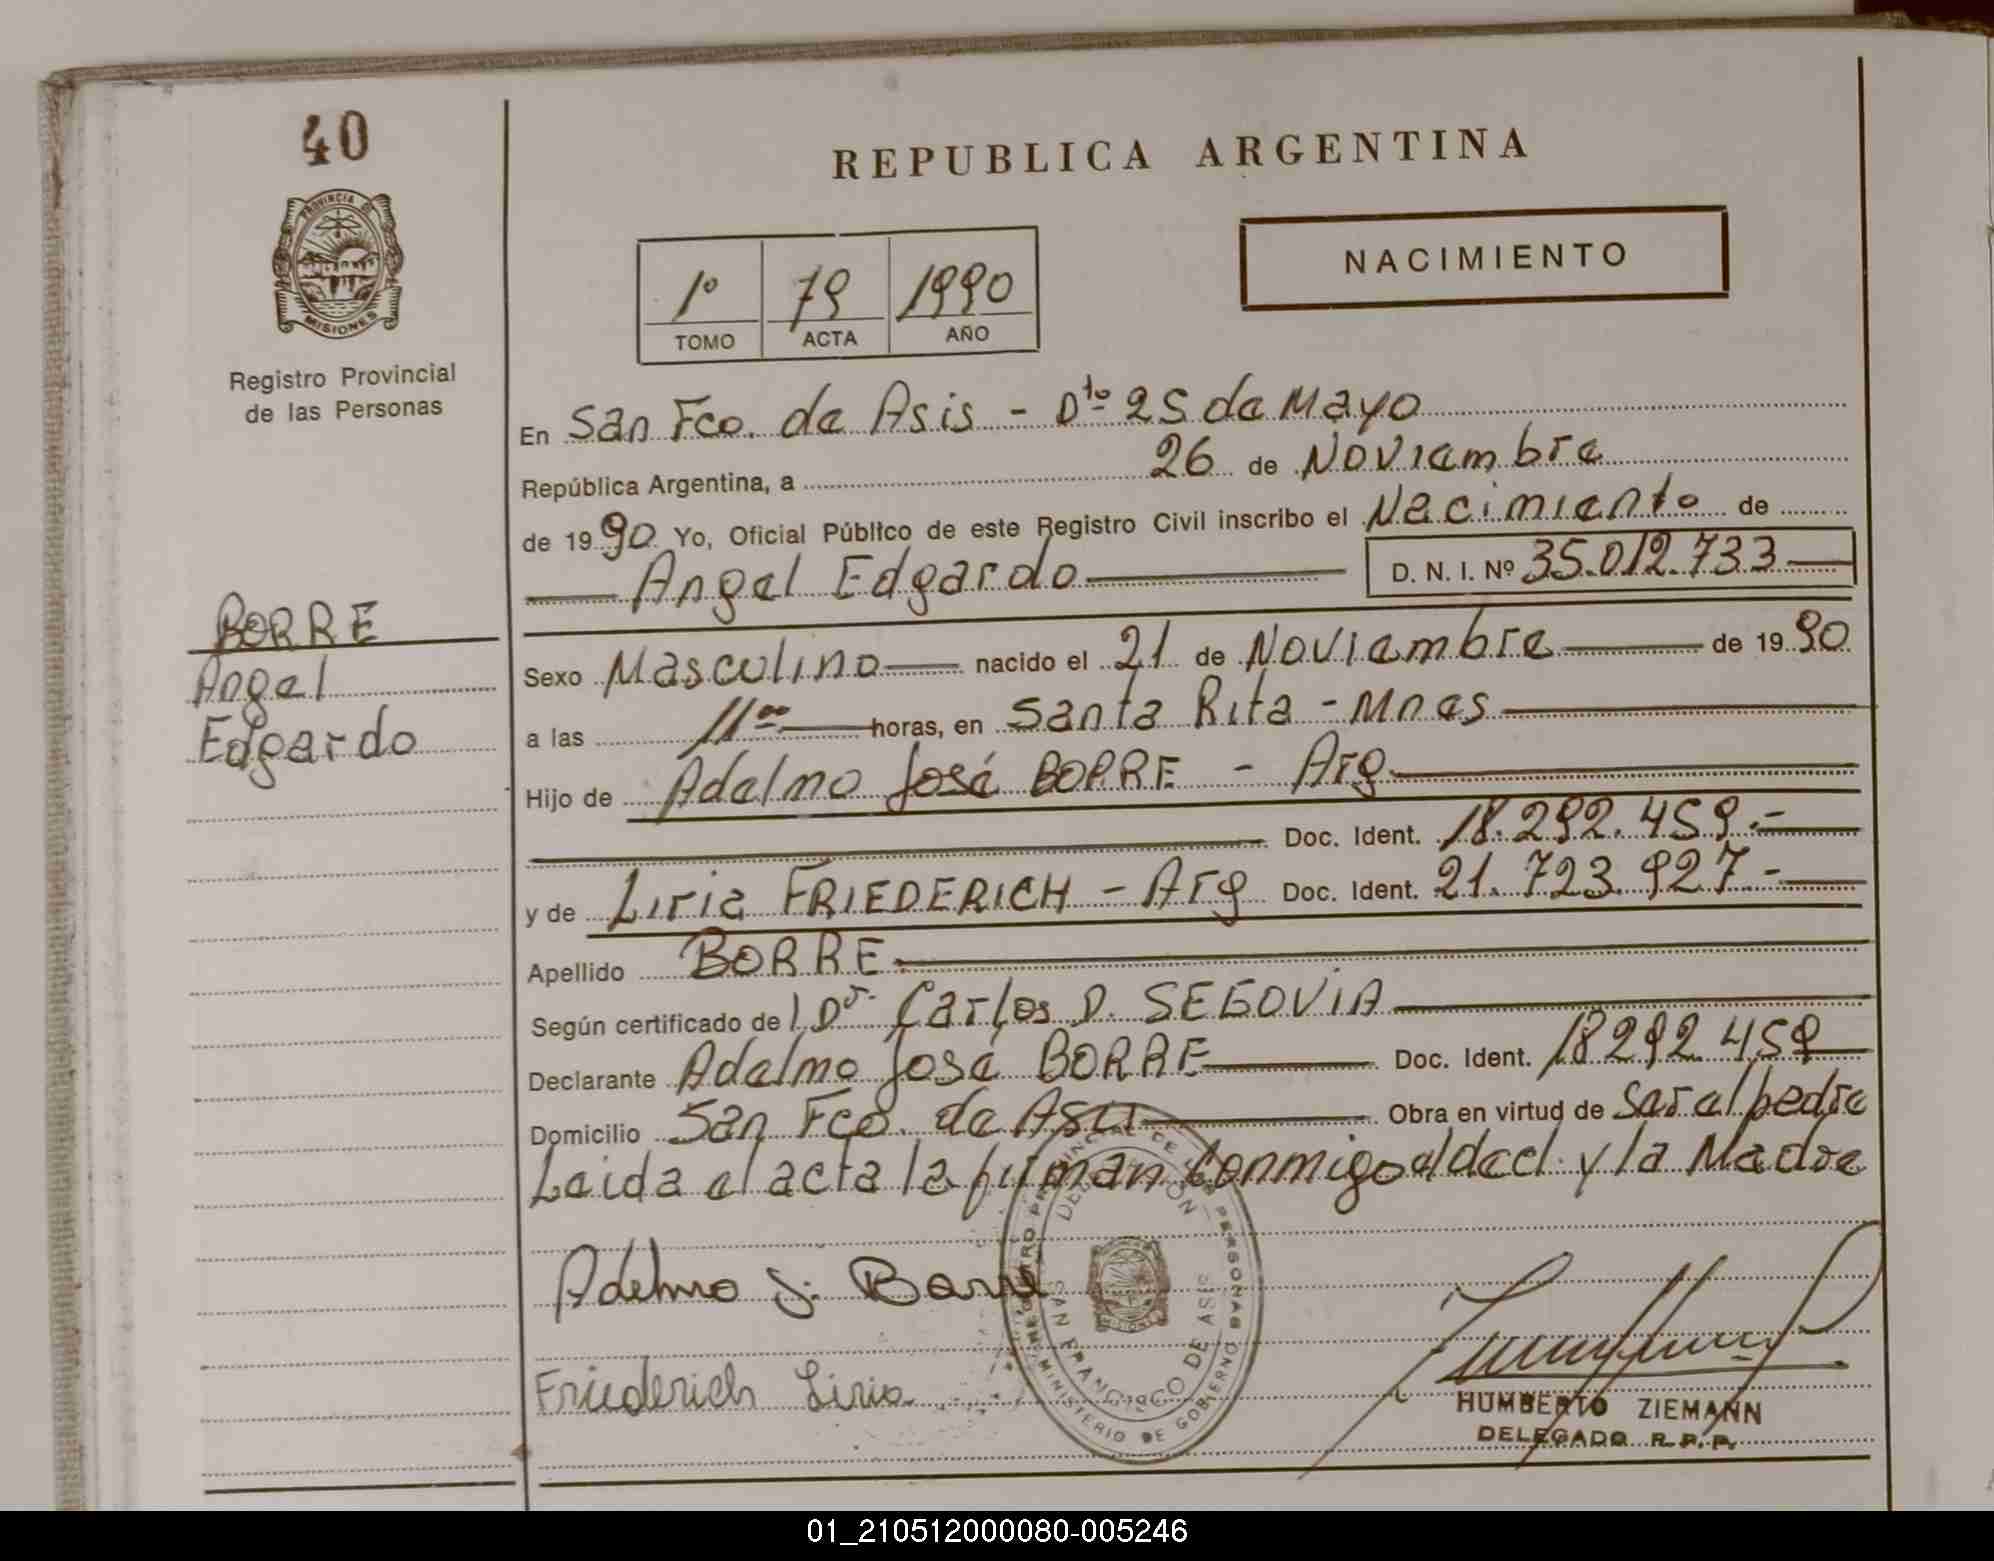 40
PROVINCIA DE
MISIONES
Registro Provincial
de las Personas
BORRE
Angel
Edgardo
REPUBLICA ARGENTINA
NACIMIENTO
1º 79 1990
TOMO ACTA AÑO
En San Fco. de Asis - Dto 25 de Mayo
República Argentina, a 26 de Noviembre
de 1990 Yo, Oficial Público de este Registro Civil inscribo el Nacimiento de
Angel Edgardo D. N. I. Nº 35.012.733
Sexo Masculino nacido el 21 de Noviembre de 1990
a las 11ºº horas, en Santa Rita - Mnes
Hijo de Adelmo José BORRE - Arg
Doc. Ident. 18.292.459.-
y de Liria FRIEDERICH - Arg Doc. Ident. 21.723.927-
Apellido BORRE
Según certificado del Dr. Carlos D. SEGOVIA
Declarante Adelmo José BORRE Doc. Ident. 18292459
Domicilio San Fco. de Asis Obra en virtud de ser el padre
Leida el acta la firman conmigo el decl. y la Madre
Adelmo J. Borre
Friederich Liria
REGISTRO PROVINCIAL DE LAS PERSONAS
DELEGACION
SAN FRANCISCO DE ASIS
MINISTERIO DE GOBIERNO
MISIONES
HUMBERTO ZIEMANN
DELEGADO R.P.P.
01_210512000080-005246